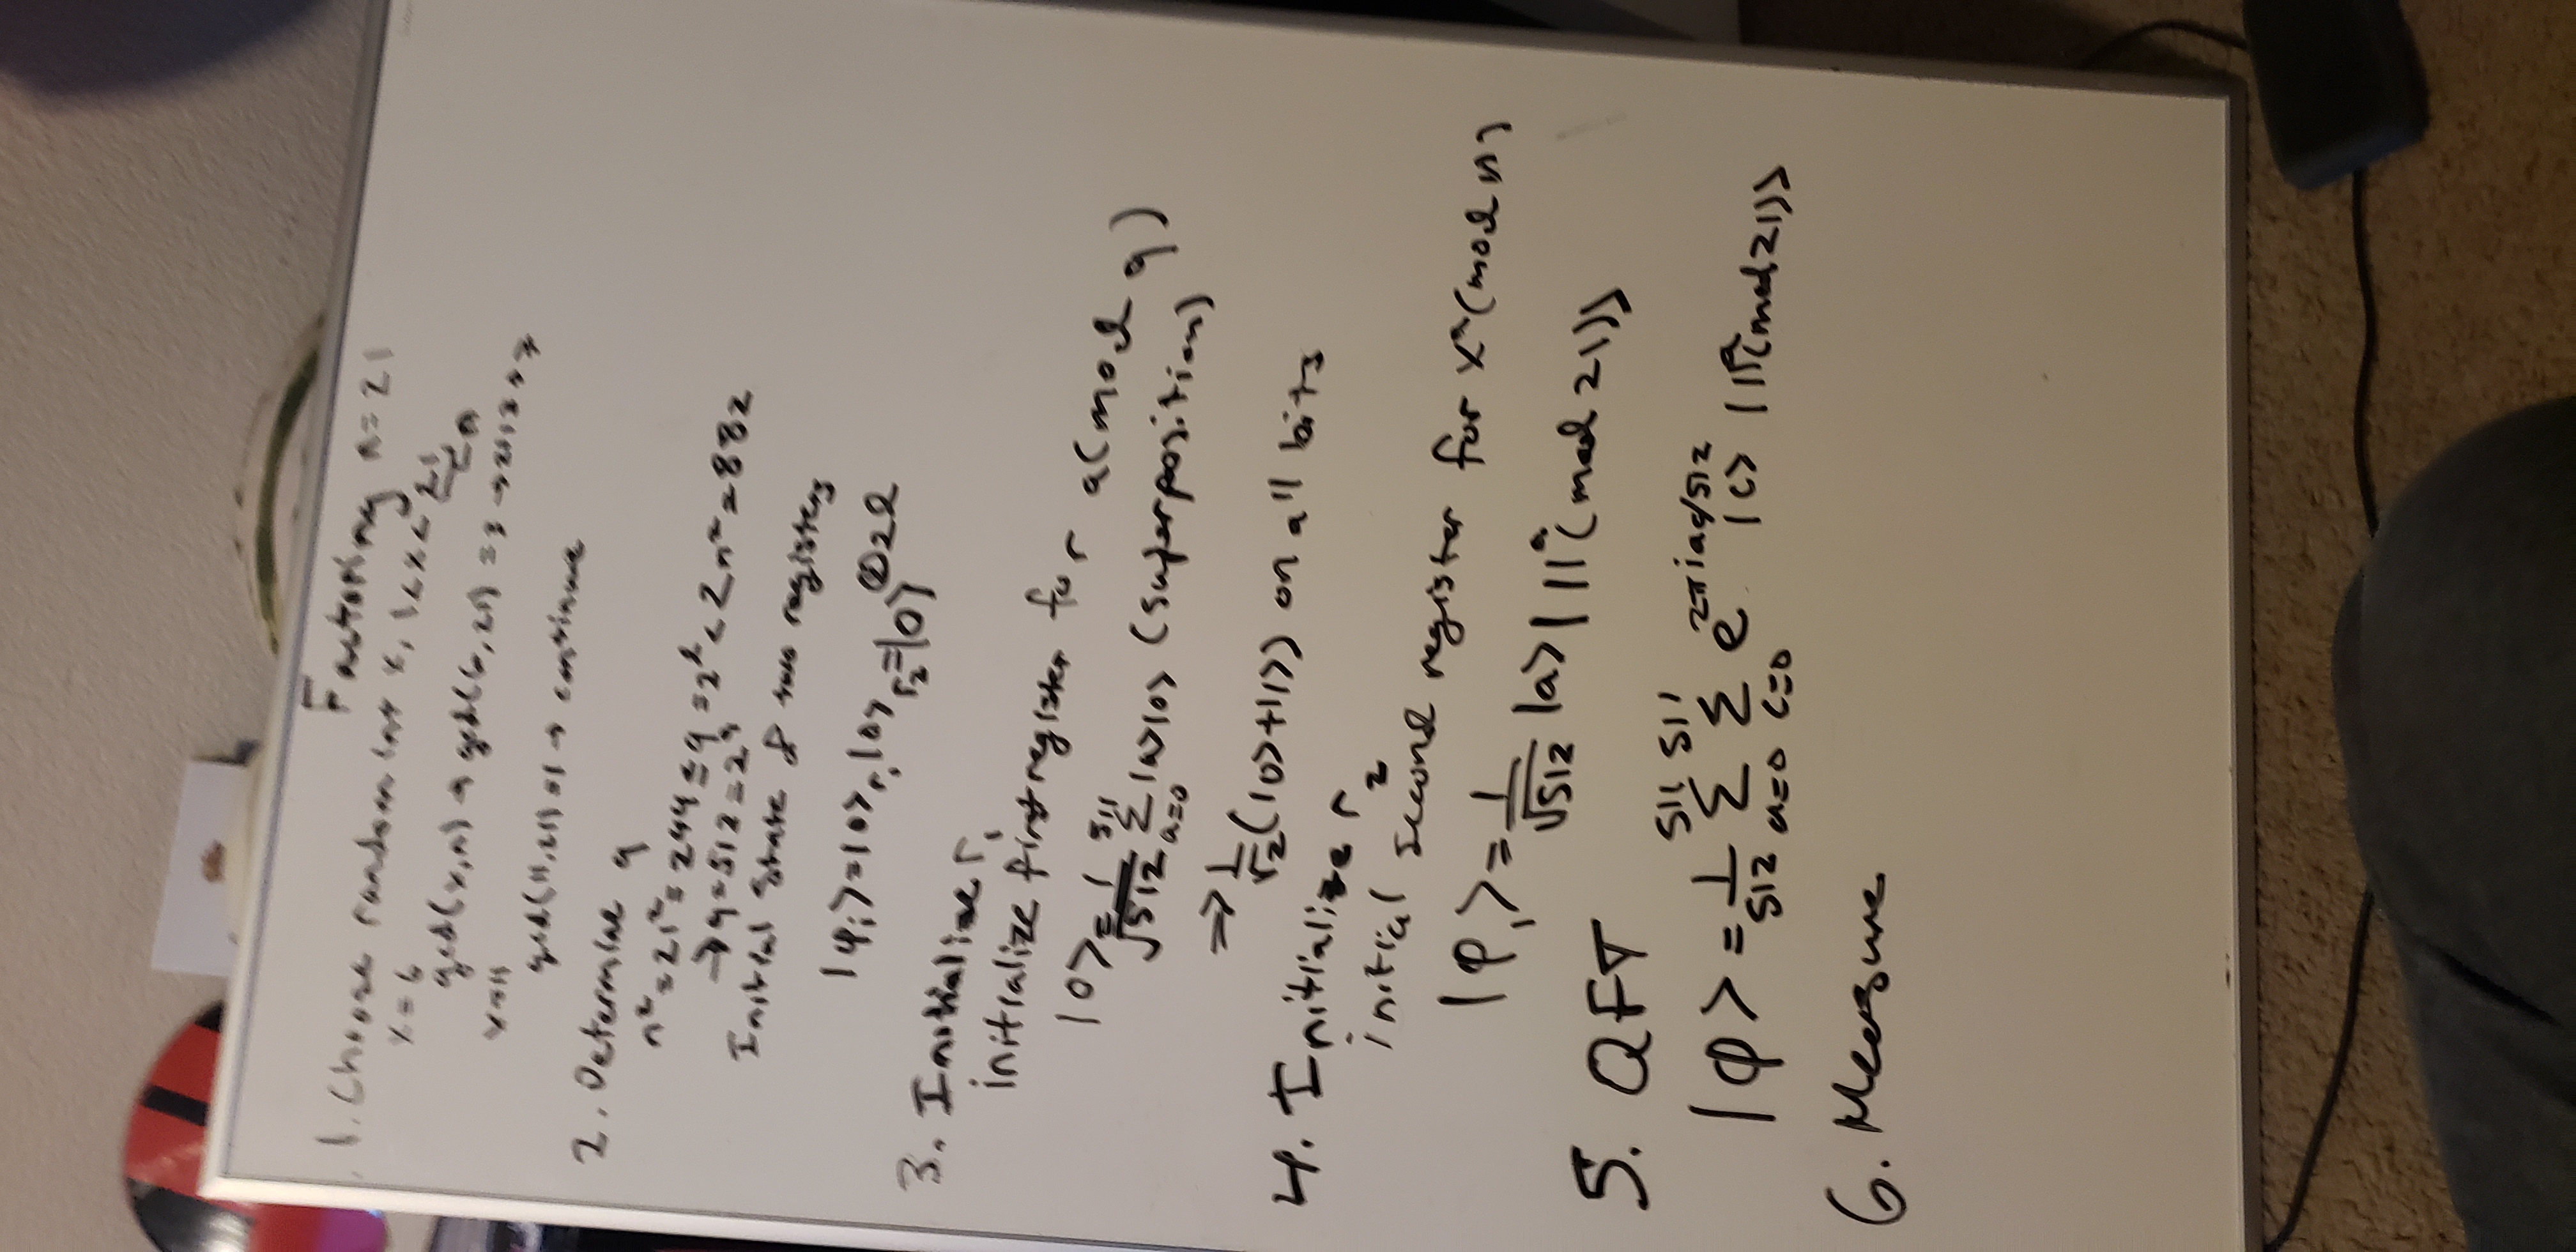 Factoring n=21
1. Choose random int x, 1<x<21
x=6
gcd(x,n) → gcd(6,21) =3 → 21/3 → 7
x=11
gcd(11,21)=1 → continue
2. Determine q
n²=21²=244≤q=2^l<2n²=882
→q=512=2⁹
Initial state of two registers
|φᵢ>=|0>r₁|0>r₂=|0>^⊗2l
3. Initialize r₁
initialize first register for a(mod q)
|0>=1/√512 Σ_{a=0}^{511} |a>|0> (superposition)
⇒1/√2(|0>+|1>) on all bits
4. Initialize r₂
initial second register for xᵃ(mod n)
|φ₁>=1/√512 |a>|11ᵃ(mod 21)>
5. QFT
|φ>=1/512 Σ_{a=0}^{511} Σ_{c=0}^{511} e^{2πiac/512} |c> |11ᵃ(mod21)>
6. Measure